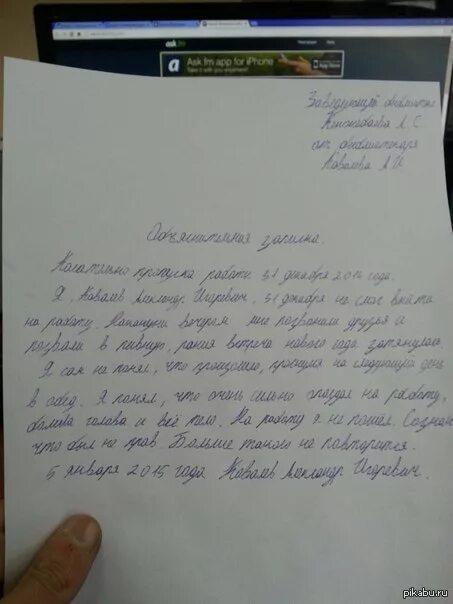 ask.fm
Ask.fm app for iPhone
Take it with you anywhere!
App Store
Заведующей библиотеки
Л. С
от библиотекаря
Ковалева А И.
Объяснительная записка.
Касательно пропуска работы 31 декабря 2014 года.
Я, Ковалев Александр Игоревич, 31 декабря не смог выйти
на работу. Накануне вечером мне позвонили друзья и
позвали в пивную, ранняя встреча нового года затянулась.
Я сам не понял, что произошло, проснулся на следующий день
в обед. Я понял, что очень сильно опоздал на работу,
болела голова и всё тело. На работу я не пошёл. Сознаю
что был не прав. Больше такого не повторится.
5 января 2015 года Ковалев Александр Игоревич.
pikabu.ru